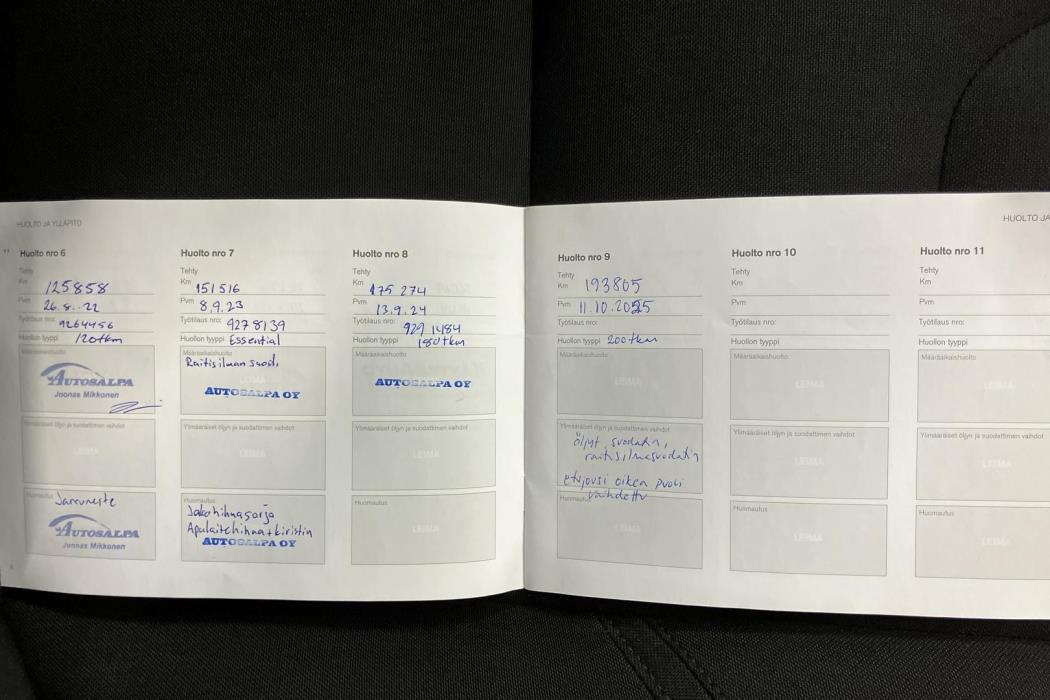 HUOLTO JA YLLÄPITO
Huolto nro 6
Tehty
Km 125858
Pvm 26.8.22
Työtilaus nro: 9264456
Huollon tyyppi 120tkm
Määräaikaishuolto
AUTOSALPA
Joonas Mikkonen
Ylimääräiset öljyn ja suodattimen vaihdot
LEIMA
Huomautus Jarruneste
AUTOSALPA
Joonas Mikkonen
Huolto nro 7
Tehty
Km 151516
Pvm 8.9.23
Työtilaus nro: 9278139
Huollon tyyppi Essential
Määräaikaishuolto
Raitisilman suod.
LEIMA
AUTOSALPA OY
Ylimääräiset öljyn ja suodattimen vaihdot
LEIMA
Huomautus
Jakohihnasarja
Apulaitehihna+kiristin
AUTOSALPA OY
Huolto nro 8
Tehty
Km 175 274
Pvm 13.9.24
Työtilaus nro: 929 1484
Huollon tyyppi 180tkm
Määräaikaishuolto
AUTOSALPA OY
Ylimääräiset öljyn ja suodattimen vaihdot
LEIMA
Huomautus
LEIMA
HUOLTO JA
Huolto nro 9
Tehty
Km 193805
Pvm 11.10.2025
Työtilaus nro:
Huollon tyyppi 200tkm
Määräaikaishuolto
LEIMA
Ylimääräiset öljyn ja suodattimen vaihdot
öljyt, suodatin,
raitisilmasuodatin
etujousi oikea puoli
vaihdettu
Huomautus
LEIMA
Huolto nro 10
Tehty
Km
Pvm
Työtilaus nro:
Huollon tyyppi
Määräaikaishuolto
LEIMA
Ylimääräiset öljyn ja suodattimen vaihdot
LEIMA
Huomautus
LEIMA
Huolto nro 11
Tehty
Km
Pvm
Työtilaus nro:
Huollon tyyppi
Määräaikaishuolto
LEIMA
Ylimääräiset öljyn ja suodattimen vaihdot
LEIMA
Huomautus
LEIMA